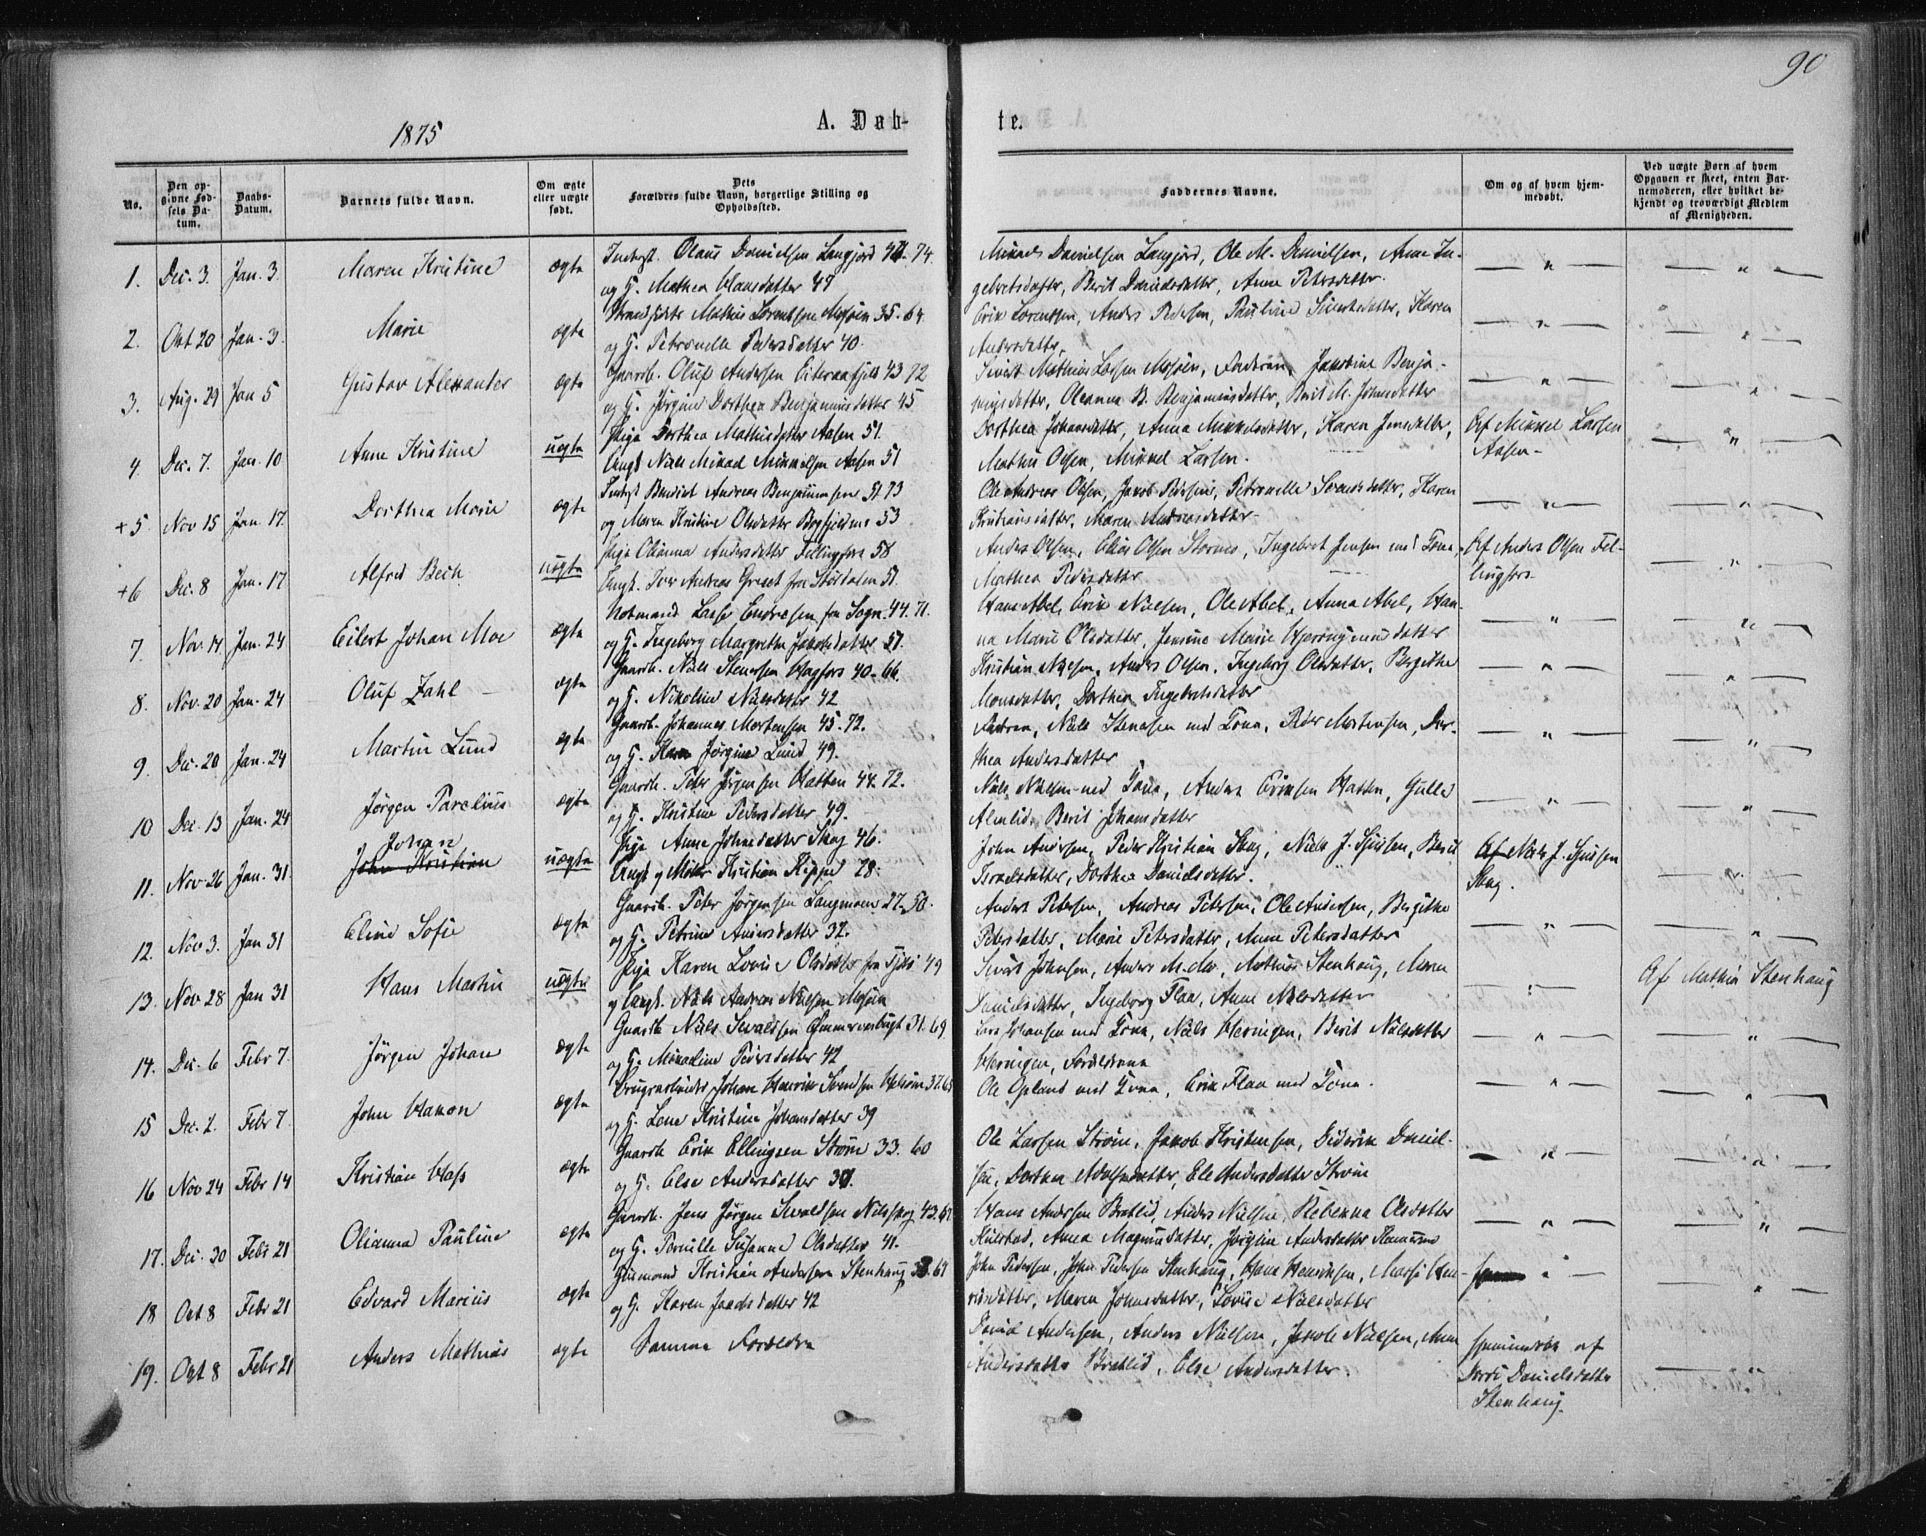 90
1875
A. Døbte.
No.
Den opgivne Fødsels Datum.
Daabs-Datum.
Barnets fulde Navn.
Om ægte eller uægte født.
Dets Forældres fulde Navn, borgerlige Stilling og Opholdssted.
Faddernes Navne.
Om og af hvem hjemmedøbt.
Ved uægte Børn af hvem Opgaven er skeet, enten Barnemoderen, eller hvilket bekjendt og troværdigt Medlem af Menigheden.
1. Dec. 3. Jan. 3. Maren Kristine ægte Inderst. Olaus Danielsen Langjord 74
og H. Mathea Hansdatter 49
Mikael Danielsen Langjord, Ole M. Danielsen, Anne In-
gebretsdatter, Berit Danielsdatter, Anne Petersdatter.
2. Okt 20 Jan. 3. Marie ægte Strandsidder Mathis Lorentsen Mosjøen 35. 64
og H. Petronelle Pedersdatter 40.
Erik Lorentsen, Anders Pedersen, Pauline Sivertsdatter, Karen
Andersdatter
3. Aug. 29 Jan 5 Gustav Alexander ægte Gaardb. Oluf Andersen Eiteraafjeld 43 72
og H. Jørgine Dorthea Benjaminsdatter 45
Sivert Mathias Larsen Mosjøen, Faderen, Jakobine Benja-
minsdatter, Oleanna B. Benjaminsdatter, Berit M. Johnsdatter
4 Dec. 7. Jan. 10 Anne Kristine uægte Pige Dorthea Mathisdatter Aasen 51.
Ungk. Niels Mikael Mikkelsen Aasen 51
Dorthea Johansdatter, Anna Mikkelsdatter, Karen Jensdatter,
Mathis Olsen, Mikkel Larsen.
Af Mikkel Larsen
Aasen
+5. Nov 15 Jan. 17. Dorthea Marie ægte Inderst Benedict Andreas Benjaminsen 51. 73
og Maren Kristine Olsdatter 53
Ole Andreas Olsen, Jakob Pedersen, Petronelle Svendsdatter, Karen
Kristiansdatter, Maren Andreasdatter
+6 Dec. 8 Jan. 17. Alfred Bech uægte Pige Olianna Andersdatter Fellingfors 58
Ungk. Iver Andreas fra Stordalen 51.
Anders Olsen, Elias Olsen Stornes, Ingebret Jensen med Kona,
Mathea Pedersdatter
Af Anders Olsen Fel-
lingfors
7. Nov. 14. Jan. 24 Eilert Johan Moe ægte Notmand Lasse Endresen fra Sogn. 44. 71.
og H. Ingeborg Margrethe Jakobsdatter 51.
Hans Abel, Erik Nielsen, Ole Abel, Anna Abel, Han-
na Marie Olsdatter, Jensine Marie Hjeronymusdatter
8. Nov. 20 Jan. 24 Oluf Zahl ægte Gaardb. Niels Stensen Hagfors 40-66.
og H. Nikoline Nilsdatter 42
Kristian Nilsen, Anders Olsen, Ingeborg Olsdatter, Bergithe
Monsdatter, Dorthea Ingebretsdatter
9. Dec. 20 Jan. 24 Martin Lund ægte Gaardb. Johannes Mortensen 45. 72.
og H. Karen Jørgine Lund 49.
Faderen, Niels Stensen med Kona, Peder Mortensen, Dor-
thea Andersdatter
10 Dec. 13 Jan. 24 Jørgen Parelius ægte Gaardb. Peter Jørgensen Hatten 44. 72.
og H. Kristine Pedersdatter 49.
Niels Nielsen med Kona, Anders Eriksen Hatten, Gulle
Almlid, Berit Johansdatter
11. Nov. 26 Jan. 31. Johan
John Kristian uægte Pige Anne Johnsdatter Skog 46.
Ungk. og Møller Kristian Kippe 28.
John Andersen, Peder Kristian Skog, Niels J. Sjursen, Berit
Israelsdatter, Dorthea Danielsdatter.
Af Niels J. Sjursen
Skog.
12. Nov 3. Jan 31 Eline Sofie ægte Gaardb. Peter Jørgensen Langmoen 27. 50.
og H. Petrine Andersdatter 32.
Anders Petersen, Andreas Petersen, Ole Andersen, Bergithe
Petersdatter, Marie Petersdatter, Anne Petersdatter
13. Nov 28 Jan 31 Hans Martin uægte Pige Karen Lovise Olsdatter fra Tjøtö 49
og Ungk. Niels Andreas Nielsen Mosjøen
Sivert Johnsen, Anders M. Moe, Mathias Stenhaug, Maren
Danielsdatter, Ingeborg Flaa, Anne Nilsdatter
Af Mathias Stenhaug
14. Dec. 6 Febr 7. Jørgen Johan ægte Gaardb. Niels Sevaldsen Ømmervasbugt 31. 69
og H. Mikaeline Pedersdatter 42
Lars Johansen med Kona, Niels Herringen, Berit Nielsdatter
Herringen, Forældrene
15 Dec. 2. Febr 7. John Hakon ægte Brugsarbeider Johan Henrik Svendsen 37. 65
og H. Lene Kristine Johansdatter 39
Ole Opland med Kona, Erik Flaa med Kona.
16 Nov 24 Febr 14 Kristian Hass ægte Gaardb. Erik Ellingsen Strøm 33. 60
og H. Else Andersdatter
Ole Larsen Strøm, Jakob Kristensen, Diderik Daniel-
sen, Dorthea Adolfsdatter, Ele Andersdatter Strøm
17. Dec. 30 Febr 21 Olianna Pauline ægte Gaardb. Jens Jørgen Sevaldsen Nilsskog 43. 67
og H. Pernille Susanne Olsdatter 41.
Hans Andersen Bratlid, Anders Nielsen, Rebekka Olsdatter
Kulstad, Anna Magnusdatter, Jørgine Andersdatter
18 Oct 8 Febr 21 Edvard Marius ægte Husmand Kristian Andersen Stenhaug 64
og H. Karen Jakobsdatter 42
John Pedersen, John Pedersen Stenhaug, Hans Henriksen, Marie Hen-
riksdatter, Maren Johnsdatter, Lovise Nilsdatter
19. Oct 8 Febr 21 Anders Mathias ægte Samme Forældre
Daniel Andersen, Anders Nielsen, Jakob Nielsen, Anne
Andersdatter Bratlid, Else Andersdatter.
Hjemmedøbt af
Danielsdatter
Stenhaug.